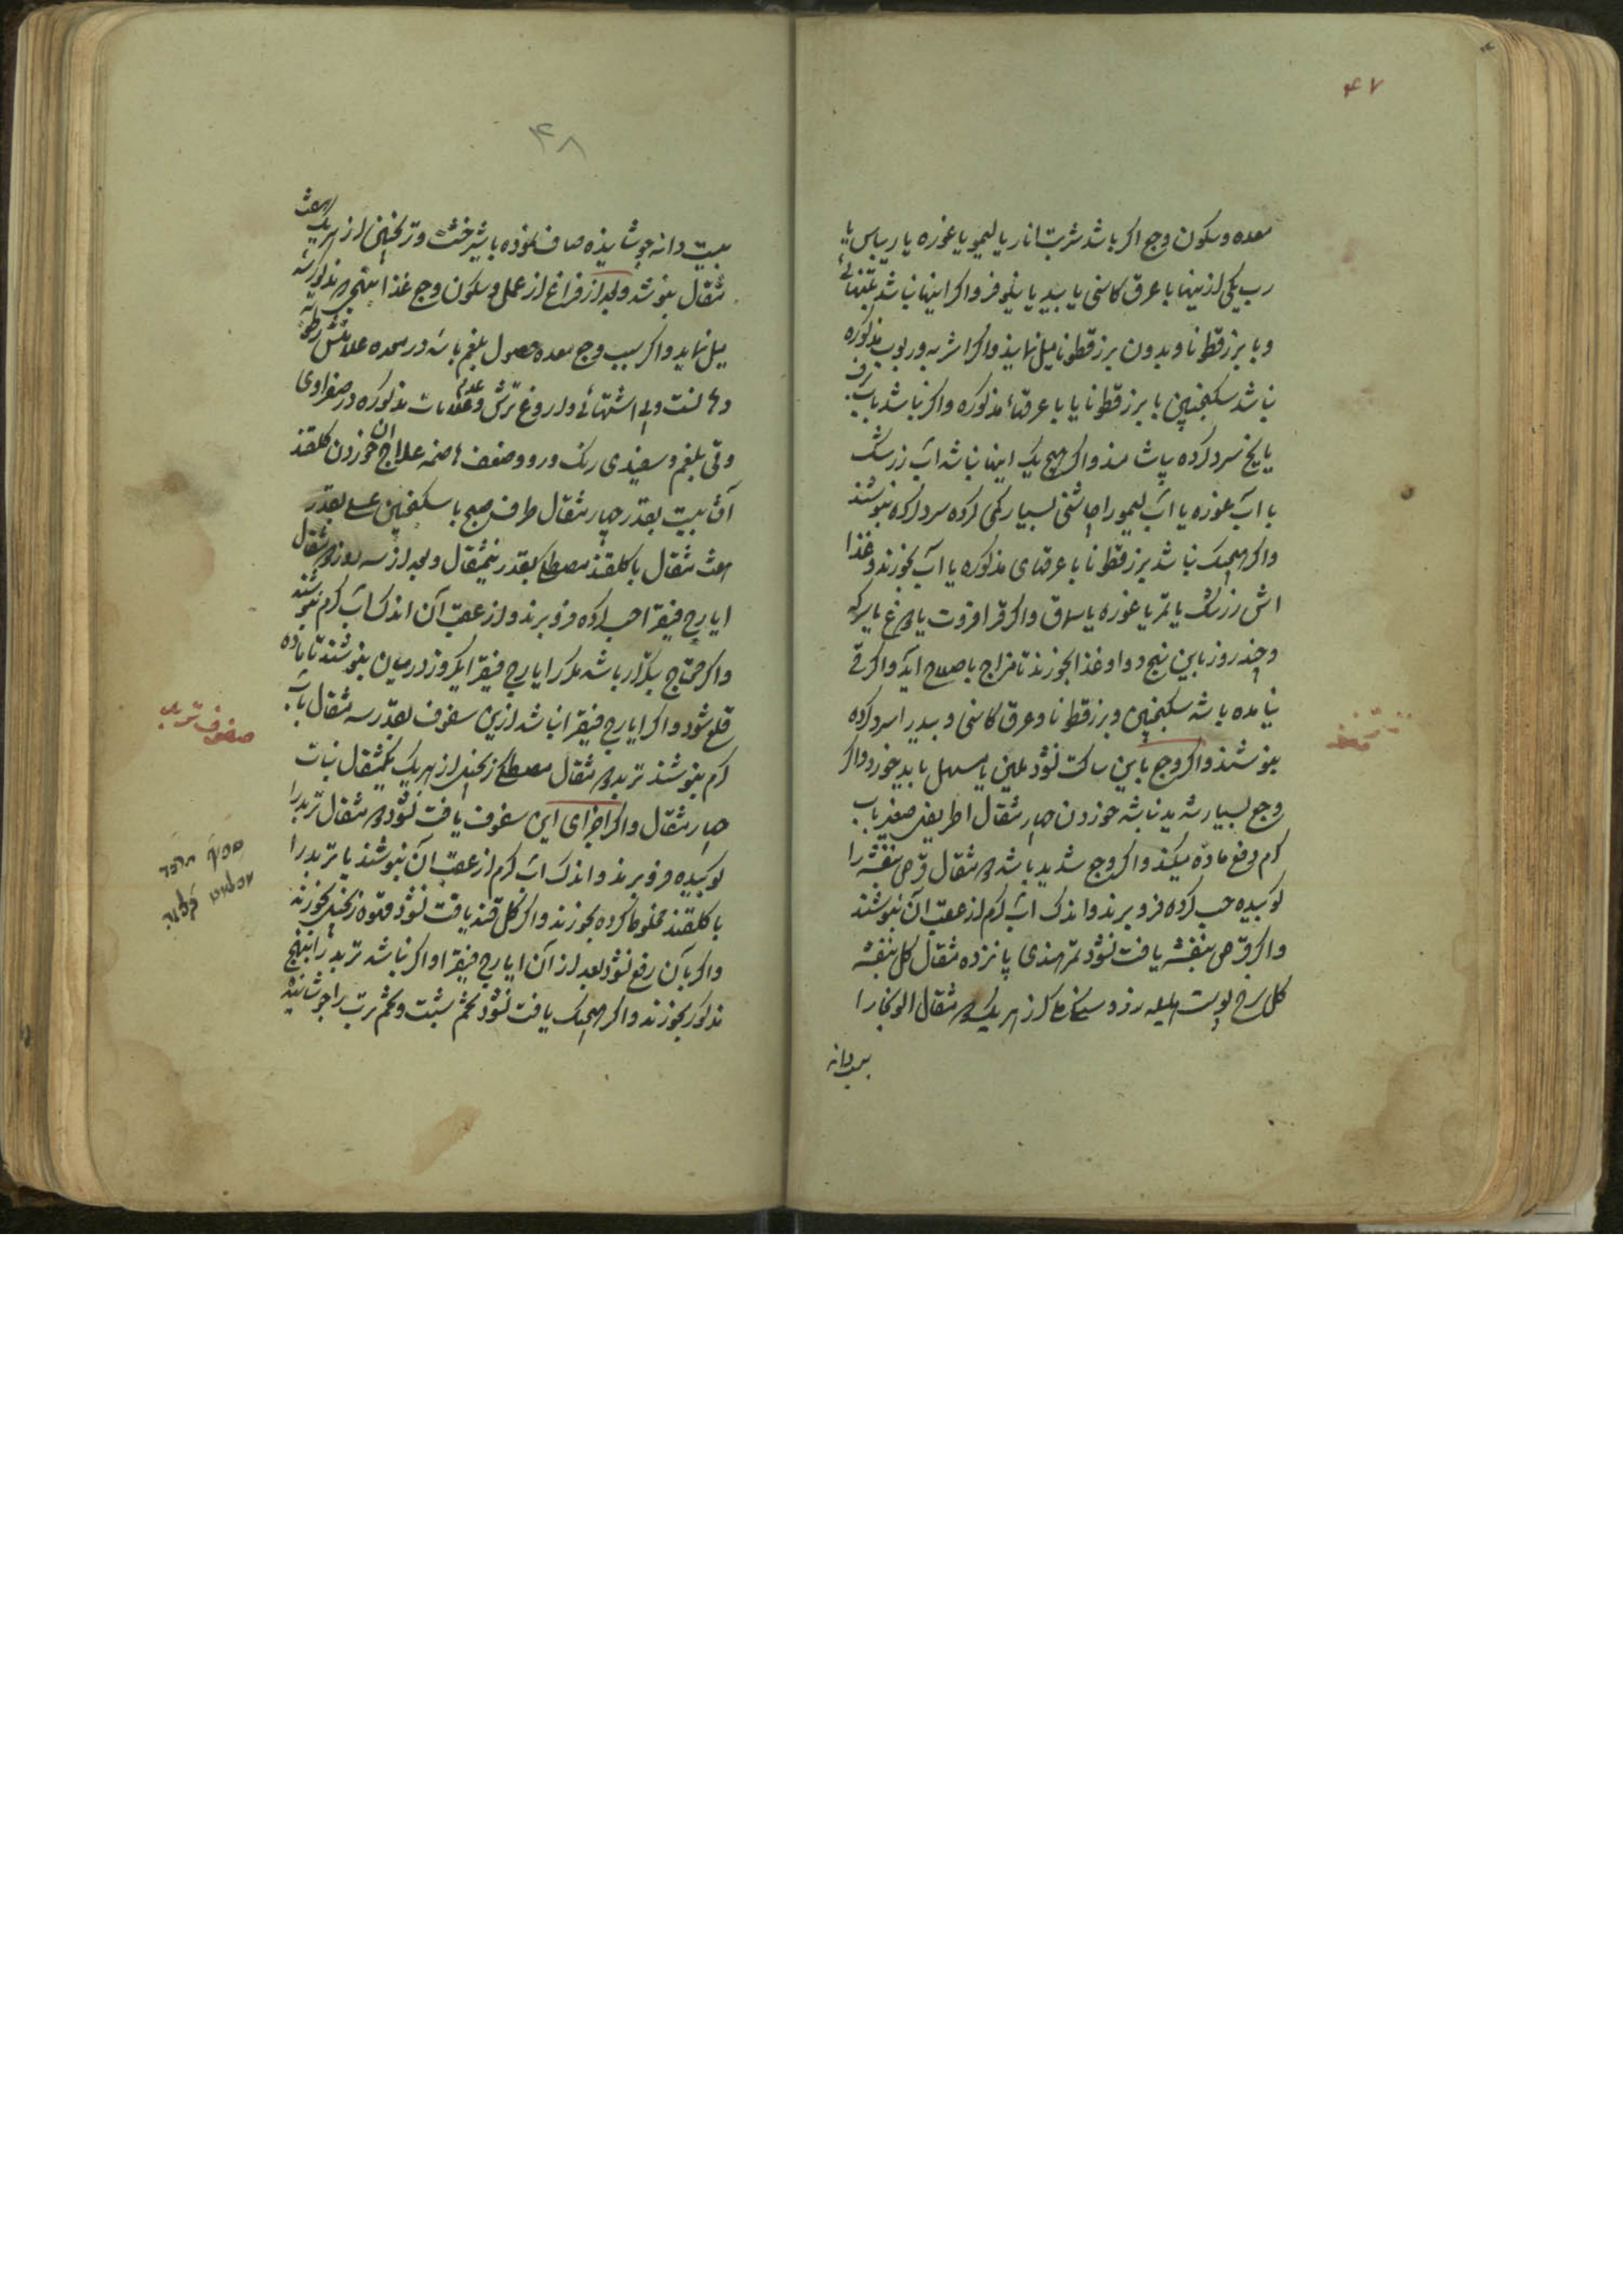 ۴۷
معده و سکون وجع اکر باشد شربت انار یا لیمو یا غوره یا ریباس یا
رب یکی از ینها با عرق کاسنی یا بید یا نیلوفر و اکر اینها نباشد بتنهائی
و با بزرقطونا و بدون بزرقطونا میل نمایذ و اکر اشربه و ربوب مذکوره
نباشد سکنجبین با بزرقطونا یا با عرقهاء مذکوره و اکر نباشد باب برف
یا یخ سرد کرده پاشامند و اکر هیچ یک اینها نباشد اب زرشک
با اب غوره یا اب لیمو را چاشنی بسیار کمی کرده سرد کرده بنوشند
و اکر هیچیک نباشد بزرقطونا با عرقهای مذکوره یا آب بخورند و غذا
اش زرشک یا تمر یا غوره یا سماق و اکر قرا قروت یا دوغ یا سرکه
و چند روز باین نهج دوا و غذا بخورند تا مزاج باصلاح اید و اکر قی
نیامده باشد سکنجبین و بزرقطونا و عرق کاسنی و بید را سرد کرده
بنوشند و اکر وجع باین ساکت نشود ملین یا مسهل باید خورد و اکر
وجع بسیار شدید نباشد خوردن چهار مثقال اطریفل صغیر باب
کرم دفع ماده میکند و اکر وجع شدید باشد دو مثقال قرص بنفشه را
کوبیده حب کرده فرو برند و اندک اب کرم از عقب آن بنوشند
و اکر قرص بنفشه یافت نشود تمر هندی پانزده مثقال کل بنفشه
کل سرخ پوست هلیله زرد سناء مکی از هریک دو مثقال الو بخارا
بیست دانه
۴۸
بیست دانه جوشانیذه صاف نموده با شیر خشت و ترنجبین از هریک هشت
مثقال بنوشد و بعد از فراغ از عمل و سکون وجع غذا بنهج مذکور
میل نماید و اکر سبب وجع معده حصول بلغم باشد در معده علامتش رطوبت
دهانست و بی اشتهائی و اروغ ترش و عدم علامات مذکوره در صفراوی
و قی بلغم و سفیدی رنک و رو و ضعف هاضمه علاج ان خوردن کلقند
آفتابیست بقدر چهار مثقال طرف صبح با سکنجبین عسلی بقدر
هشت مثقال یا کلقند مصطکی بقدر نیمثقال و بعد از سه روز دو مثقال
ایارج فیقرا حب کرده فرو برند و از عقب آن اندک آب کرم بنوشند
و اکر محتاج بتکرار باشد مکرر ایارج فیقرا یکروز در میان بنوشند تا ماده
قلع شود و اکر ایارج فیقرا نباشد ازین سفوف بقدر سه مثقال بآب
کرم بنوشند تربد دو مثقال مصطکی زنجبیل از هریک یکمثقال نبات
چهار مثقال و اکر اجزای این سفوف یافت نشود دو مثقال تربد را
کوبیده فرو برند و اندک اب کرم از عقب آن بنوشند یا تربد را
با کلقند مخلوط کرده بخورند و اکر کل قند یافت نشود قهوه زنجبیل بخورند
و اکر بآن رفع نشود بعد از آن ایارج فیقرا و اکر نباشد تربد را بنهج
مذکور بخورند و اکر هیچیک یافت نشود تخم شبت و تخم ترب را جوشانیده
صفوف تربد